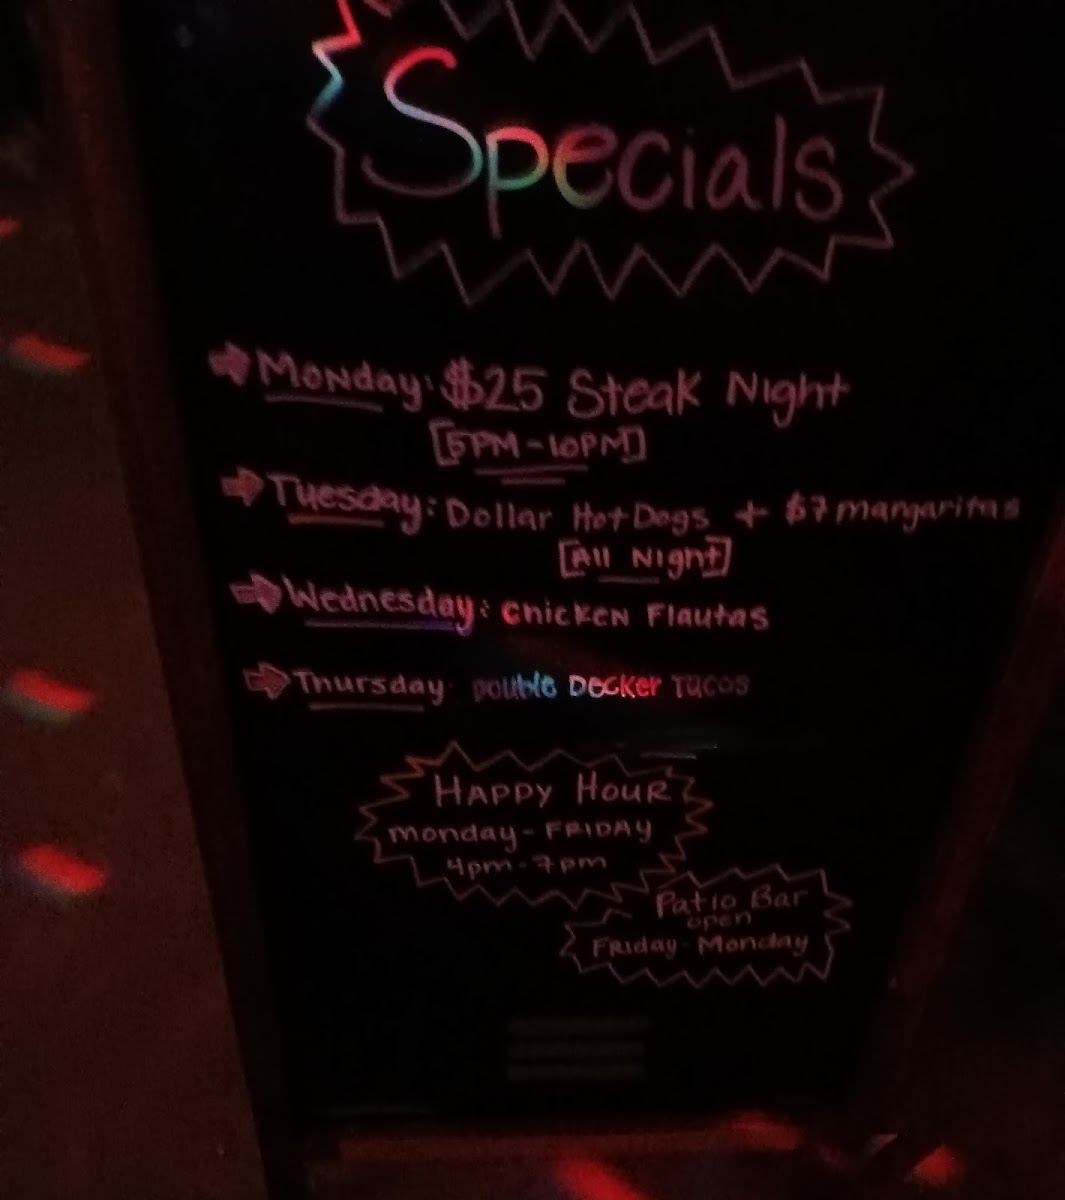 Specials
Monday: $25 Steak Night
[5PM-10PM]
Tuesday: Dollar Hot Dogs + $7 margaritas
[All Night]
Wednesday: Chicken Flautas
Thursday: Double Decker Tacos
Happy Hour
Monday-FRIDAY
4pm-7pm
Patio Bar
open
Friday-Monday